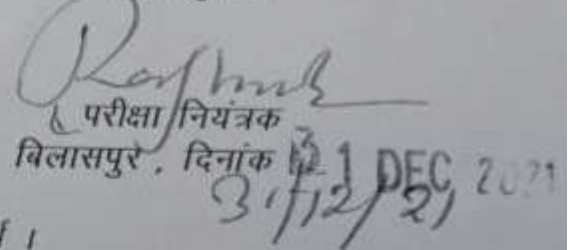 परीक्षा नियंत्रक
बिलासपुर, दिनांक 31 DEC 2021
31/12/21